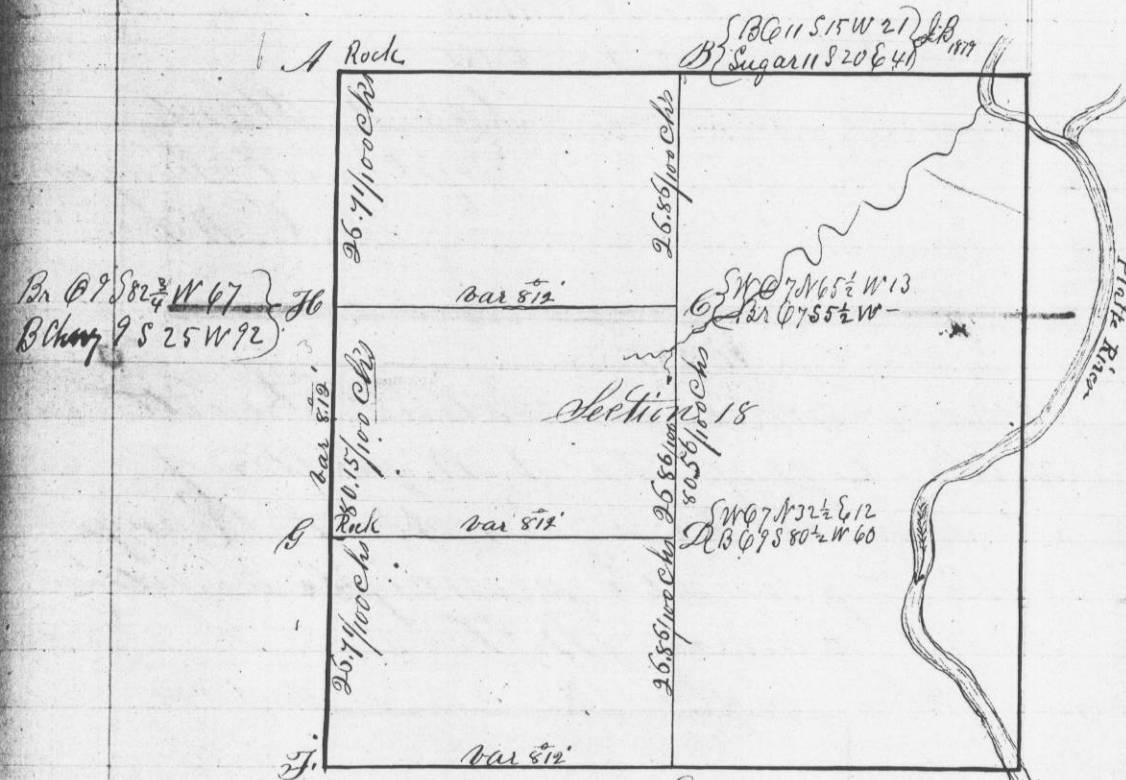 A Rock
B { BO 11 S 15 W 21 } J.B. 1879
{ Sugar 11 S 20 E 41 }
26.71/100 Chs
26.86/100 Chs
Br O 9 S 82 3/4 W 67
B Cherry 9 S 25 W 92
H
var 8°12'
C { W O 7 N 65 1/2 W 13
Br O 7 S 5 1/2 W -
Platte River
Section 18
var 8°12'
80.15/100 Chs
26.86/100
80.56/100 Chs
G Rock
var 8°12'
D { W O 7 N 32 1/2 E 12
B O 9 S 80 1/2 W 60
26.71/100 Chs
26.86/100 Chs
F.
var 8°12'